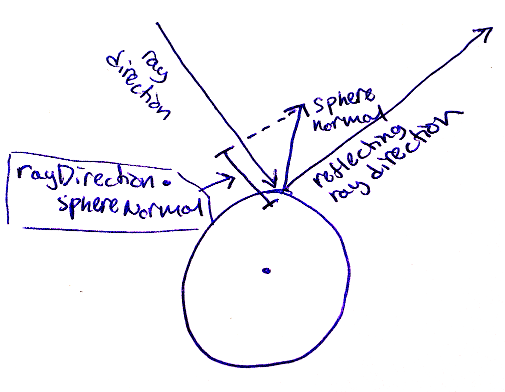 ray
direction
sphere
normal
reflecting
ray direction
rayDirection •
sphereNormal